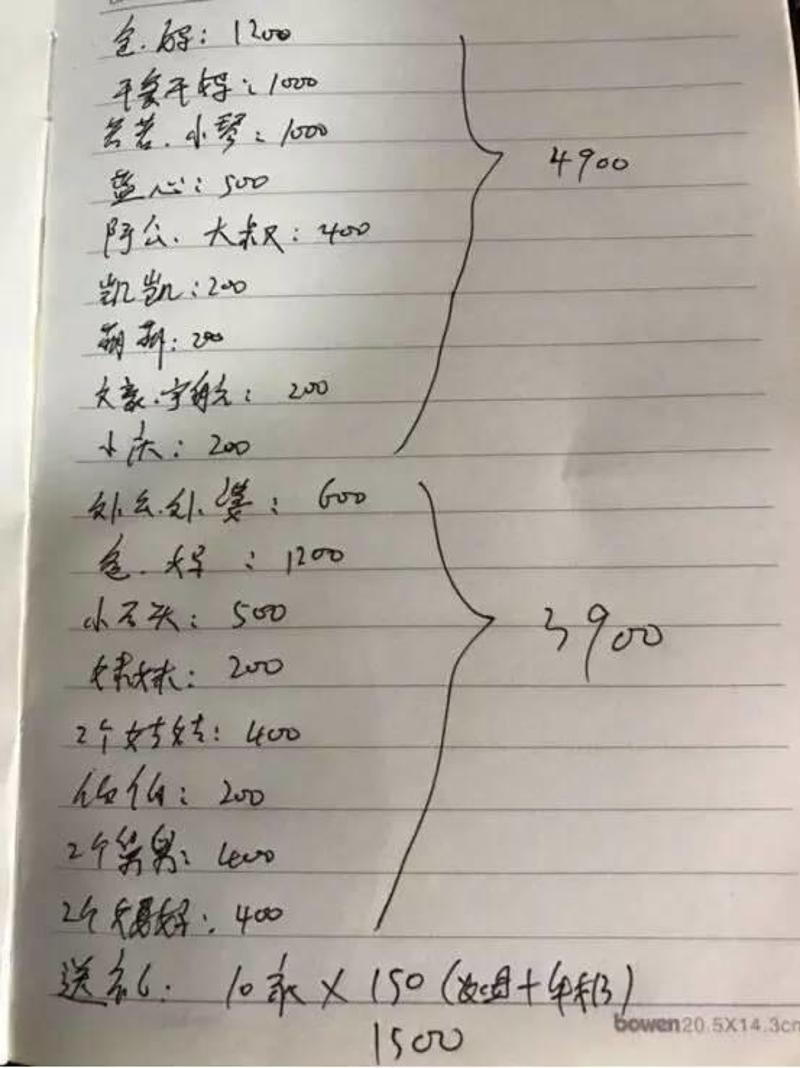 爸.妈: 1200
干爹干妈: 1000
爸爸.小琴: 1000
蓝心: 500
阿公.大叔: 400
凯凯: 200
: 200
文豪.宇航: 200
小沃: 200
外公.外婆: 600
爸.妈: 1200
小石头: 500
妹妹: 200
2个姑姑: 400
伯伯: 200
2个舅舅: 400
2个舅妈: 400
4900
3900
送礼: 10家 X 150 (烟+年糕)
1500
bowen 20.5X14.3cm